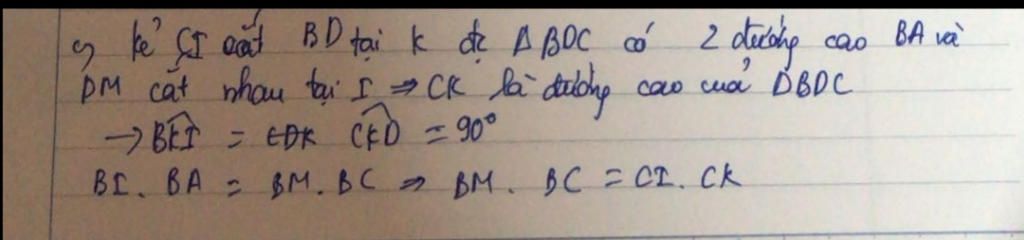 c) kẻ CI cắt BD tại K đc ΔBDC có 2 đường cao BA và
DM cắt nhau tại I ⇒ CK là đường cao của ΔBDC
→ \widehat{BKI} = \widehat{CKD} = 90°
BI . BA = BM . BC ⇒ BM . BC = CI . CK